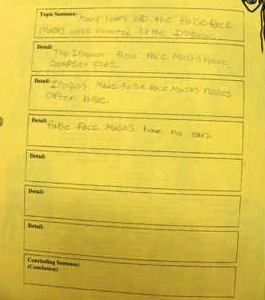 Topic Sentence: Many years ago the false face
masks were invented by the Iroquois.
Detail:
The Iroquois false face Masks have
eyes.
Detail: Iroquois Make false face Masks noses
often large.
Detail: false face Masks have no ears
Detail:
Detail:
Detail:
Concluding Sentence:
(Conclusion)